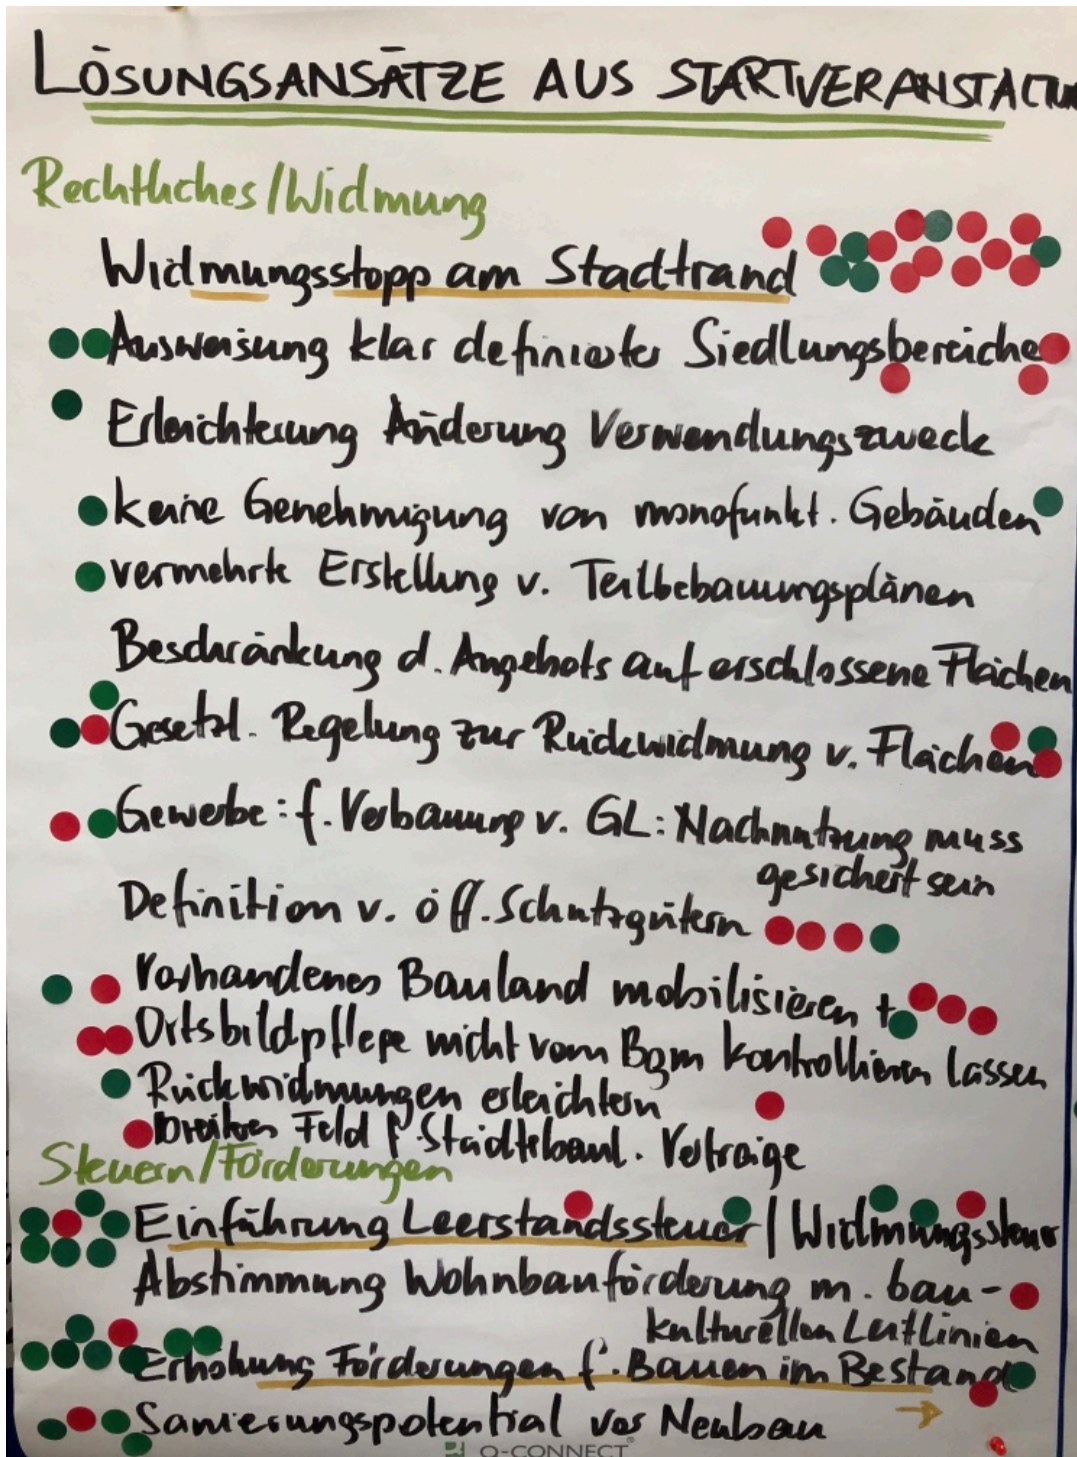 LÖSUNGSANSÄTZE AUS STARTVERANSTALTUN
Rechtliches/Widmung
Widmungsstopp am Stadtrand
Ausweisung klar definierter Siedlungsbereiche
Erleichterung Änderung Verwendungszweck
keine Genehmigung von monofunkt. Gebäuden
vermehrte Erstellung v. Teilbebauungsplänen
Beschränkung d. Angebots auf erschlossene Flächen
Gesetzl. Regelung zur Rückwidmung v. Flächen
Gewerbe: f. Verbauung v. GL: Nachnutzung muss
gesichert sein
Definition v. öff. Schutzgütern
Vorhandenes Bauland mobilisieren +
Ortsbildpflege nicht vom Bgm kontrollieren lassen
Rückwidmungen erleichtern
breiteres Feld f. Städtebaul. Verträge
Steuern/Förderungen
Einführung Leerstandssteuer / Widmungssteuer
Abstimmung Wohnbauförderung m. bau-
kulturellen Leitlinien
Erhöhung Förderungen f. Bauen im Bestand
→
Sanierungspotential vor Neubau
Q-CONNECT®